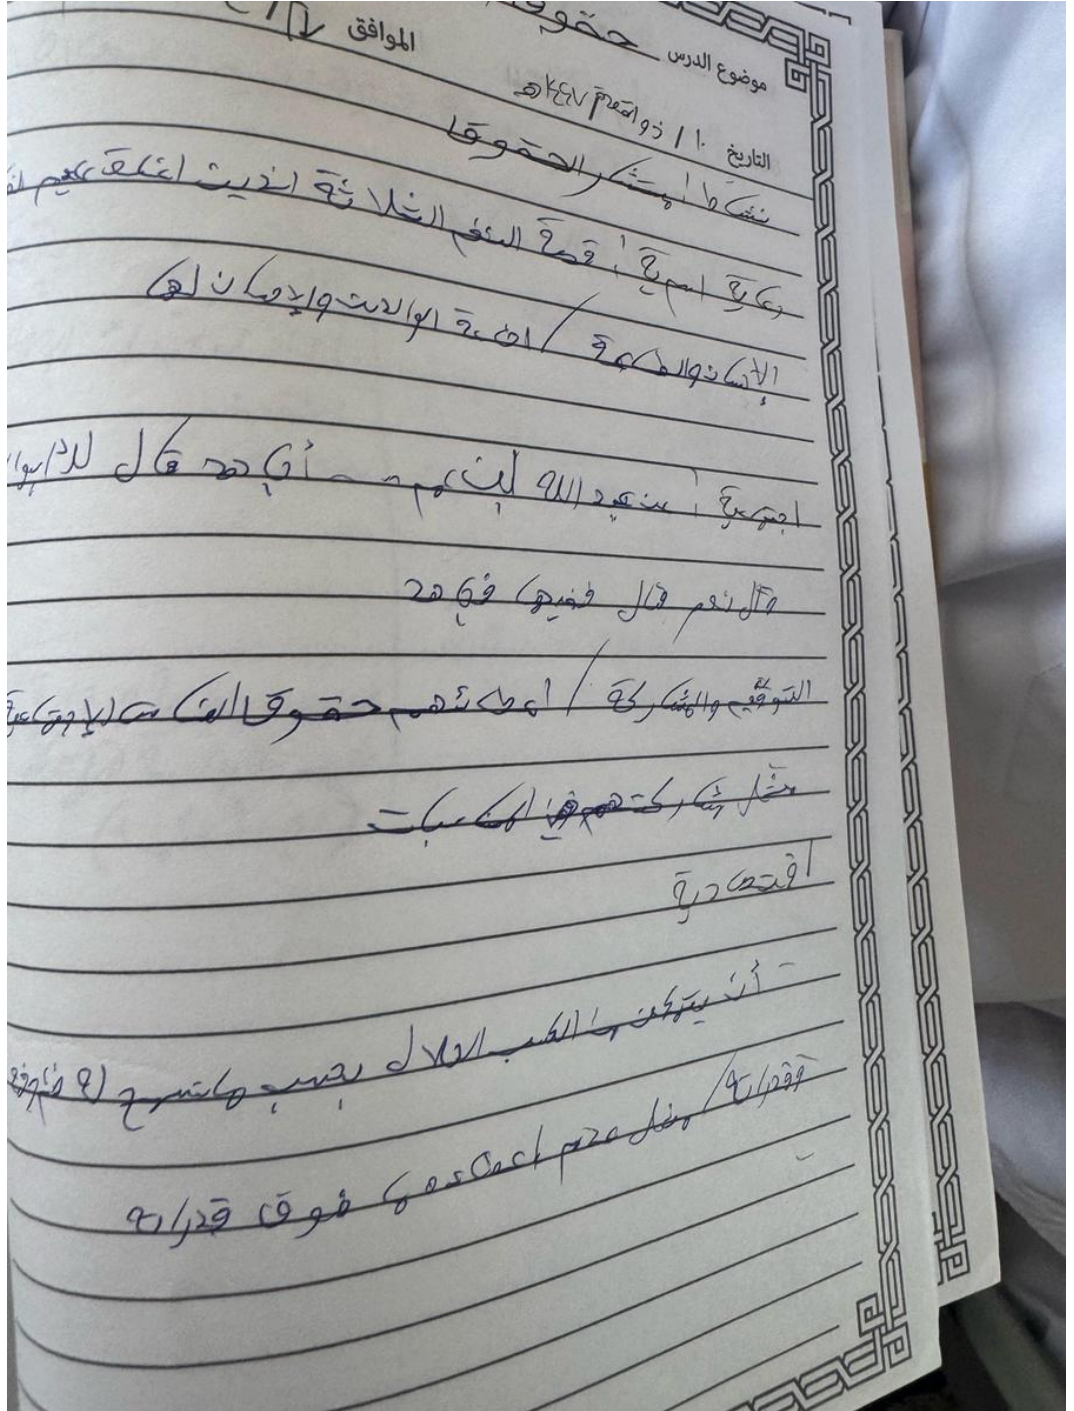 موضوع الدرس حقوق الموافق
التاريخ ١٠ / ذو القعدة ١٤٤٧هـ
نشاط ا يبتكر الحقوقا
رعاية اسرية : قصة النفر الثلاثة الذين اغلق عليهم
الإنسانو / اهمية الوالدين والإحسان لها
اجتماعية : عن عبد الله بن عمر أن قال
قال نعم قال ففيهما فجاهد
التوقيع والمشاركة / اعطائهم حقوق الناس الإجتماعية
مثل مشاركتهم في المناسبات
اقتصادية
- أن من الكسب الحلال بحسب ما تسمح له ظروفه
وقدراته / مثل عدم اعطائه ما فوق قدراته